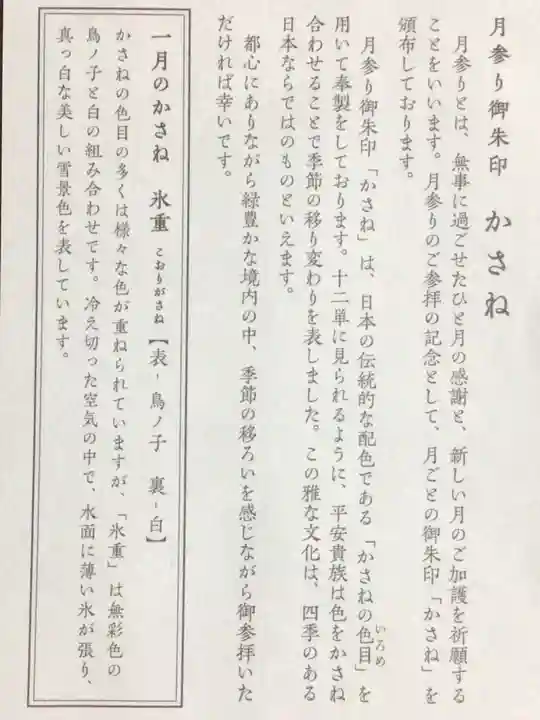 月参り御朱印 かさね
月参りとは、無事に過ごせたひと月の感謝と、新しい月のご加護を祈願する
ことをいいます。月参りのご参拝の記念として、月ごとの御朱印「かさね」を
頒布しております。
月参り御朱印「かさね」は、日本の伝統的な配色である「かさねの色目」を
いろめ
用いて奉製をしております。十二単に見られるように、平安貴族は色をかさね
合わせることで季節の移り変わりを表しました。この雅な文化は、四季のある
日本ならではのものといえます。
都心にありながら緑豊かな境内の中、季節の移ろいを感じながら御参拝いた
だければ幸いです。
一月のかさね 氷重 こおりがさね【表-鳥ノ子 裏-白】
かさねの色目の多くは様々な色が重ねられていますが、「氷重」は無彩色の
鳥ノ子と白の組み合わせです。冷え切った空気の中で、水面に薄い氷が張り、
真っ白な美しい雪景色を表しています。